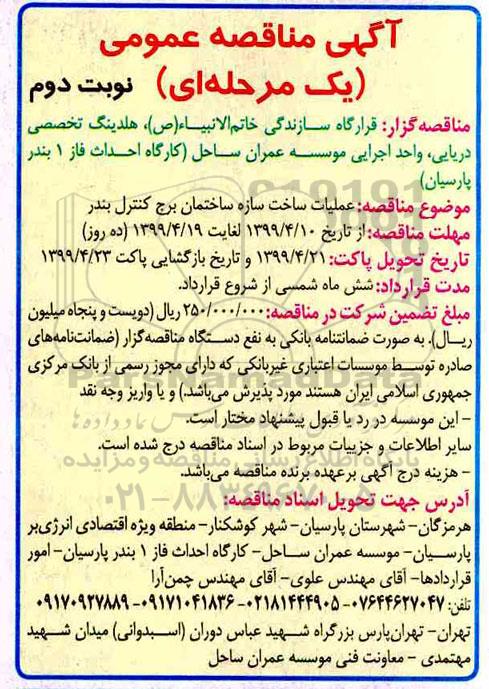 آگهی مناقصه عمومی
(یک مرحله‌ای) نوبت دوم
مناقصه‌گزار: قرارگاه سازندگی خاتم‌الانبیاء(ص)، هلدینگ تخصصی
دریایی، واحد اجرایی موسسه عمران ساحل (کارگاه احداث فاز ۱ بندر
پارسیان)
موضوع مناقصه: عملیات ساخت سازه ساختمان برج کنترل بندر
مهلت مناقصه: از تاریخ ۱۳۹۹/۴/۱۰ لغایت ۱۳۹۹/۴/۱۹ (ده روز)
تاریخ تحویل پاکت: ۱۳۹۹/۴/۲۱ و تاریخ بازگشایی پاکت ۱۳۹۹/۴/۲۳
مدت قرارداد: شش ماه شمسی از شروع قرارداد.
مبلغ تضمین شرکت در مناقصه: ۲۵۰/۰۰۰/۰۰۰ ریال (دویست و پنجاه میلیون
ریال). به صورت ضمانتنامه بانکی به نفع دستگاه مناقصه‌گزار (ضمانت‌نامه‌های
صادره توسط موسسات اعتباری غیربانکی که دارای مجوز رسمی از بانک مرکزی
جمهوری اسلامی ایران هستند مورد پذیرش می‌باشد.) و یا واریز وجه نقد
– این موسسه در رد یا قبول پیشنهاد مختار است.
سایر اطلاعات و جزییات مربوط در اسناد مناقصه درج شده است.
– هزینه درج آگهی برعهده برنده مناقصه می‌باشد.
آدرس جهت تحویل اسناد مناقصه:
هرمزگان– شهرستان پارسیان– شهر کوشکنار– منطقه ویژه اقتصادی انرژی‌بر
پارسیان– موسسه عمران ساحل– کارگاه احداث فاز ۱ بندر پارسیان– امور
قراردادها– آقای مهندس علوی– آقای مهندس چمن‌آرا
تلفن: ۰۷۶۴۴۶۲۷۰۴۷– ۰۲۱۸۱۴۴۴۹۰۵– ۰۹۱۷۱۰۴۱۸۳۶– ۰۹۱۷۰۹۲۷۸۸۹
تهران– تهران‌پارس بزرگراه شهید عباس دوران (اسبدوانی) میدان شهید
مهتمدی – معاونت فنی موسسه عمران ساحل
ParsNamadData
پایگاه اطلاع رسانی مناقصه و مزایده